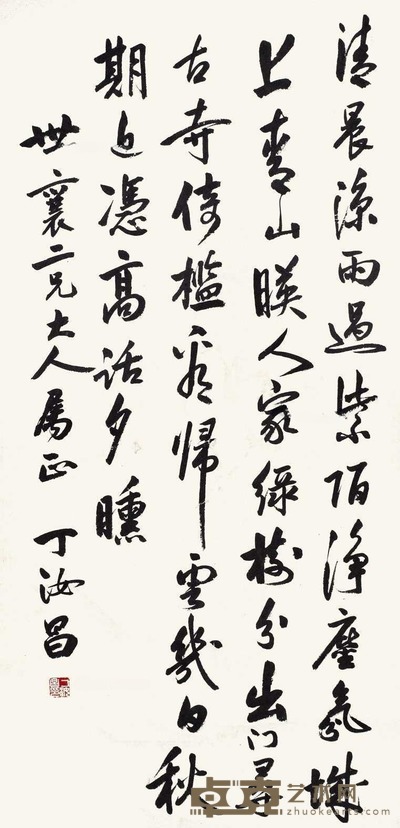 清晨涼雨過紫陌淨塵氛城
上青山暎人家綠樹分出門尋
古寺倚檻看歸雲幾日秋
期近憑高話夕曛
世襄二兄大人屬正 丁汝昌
卓克艺术网
zhuokearts.com